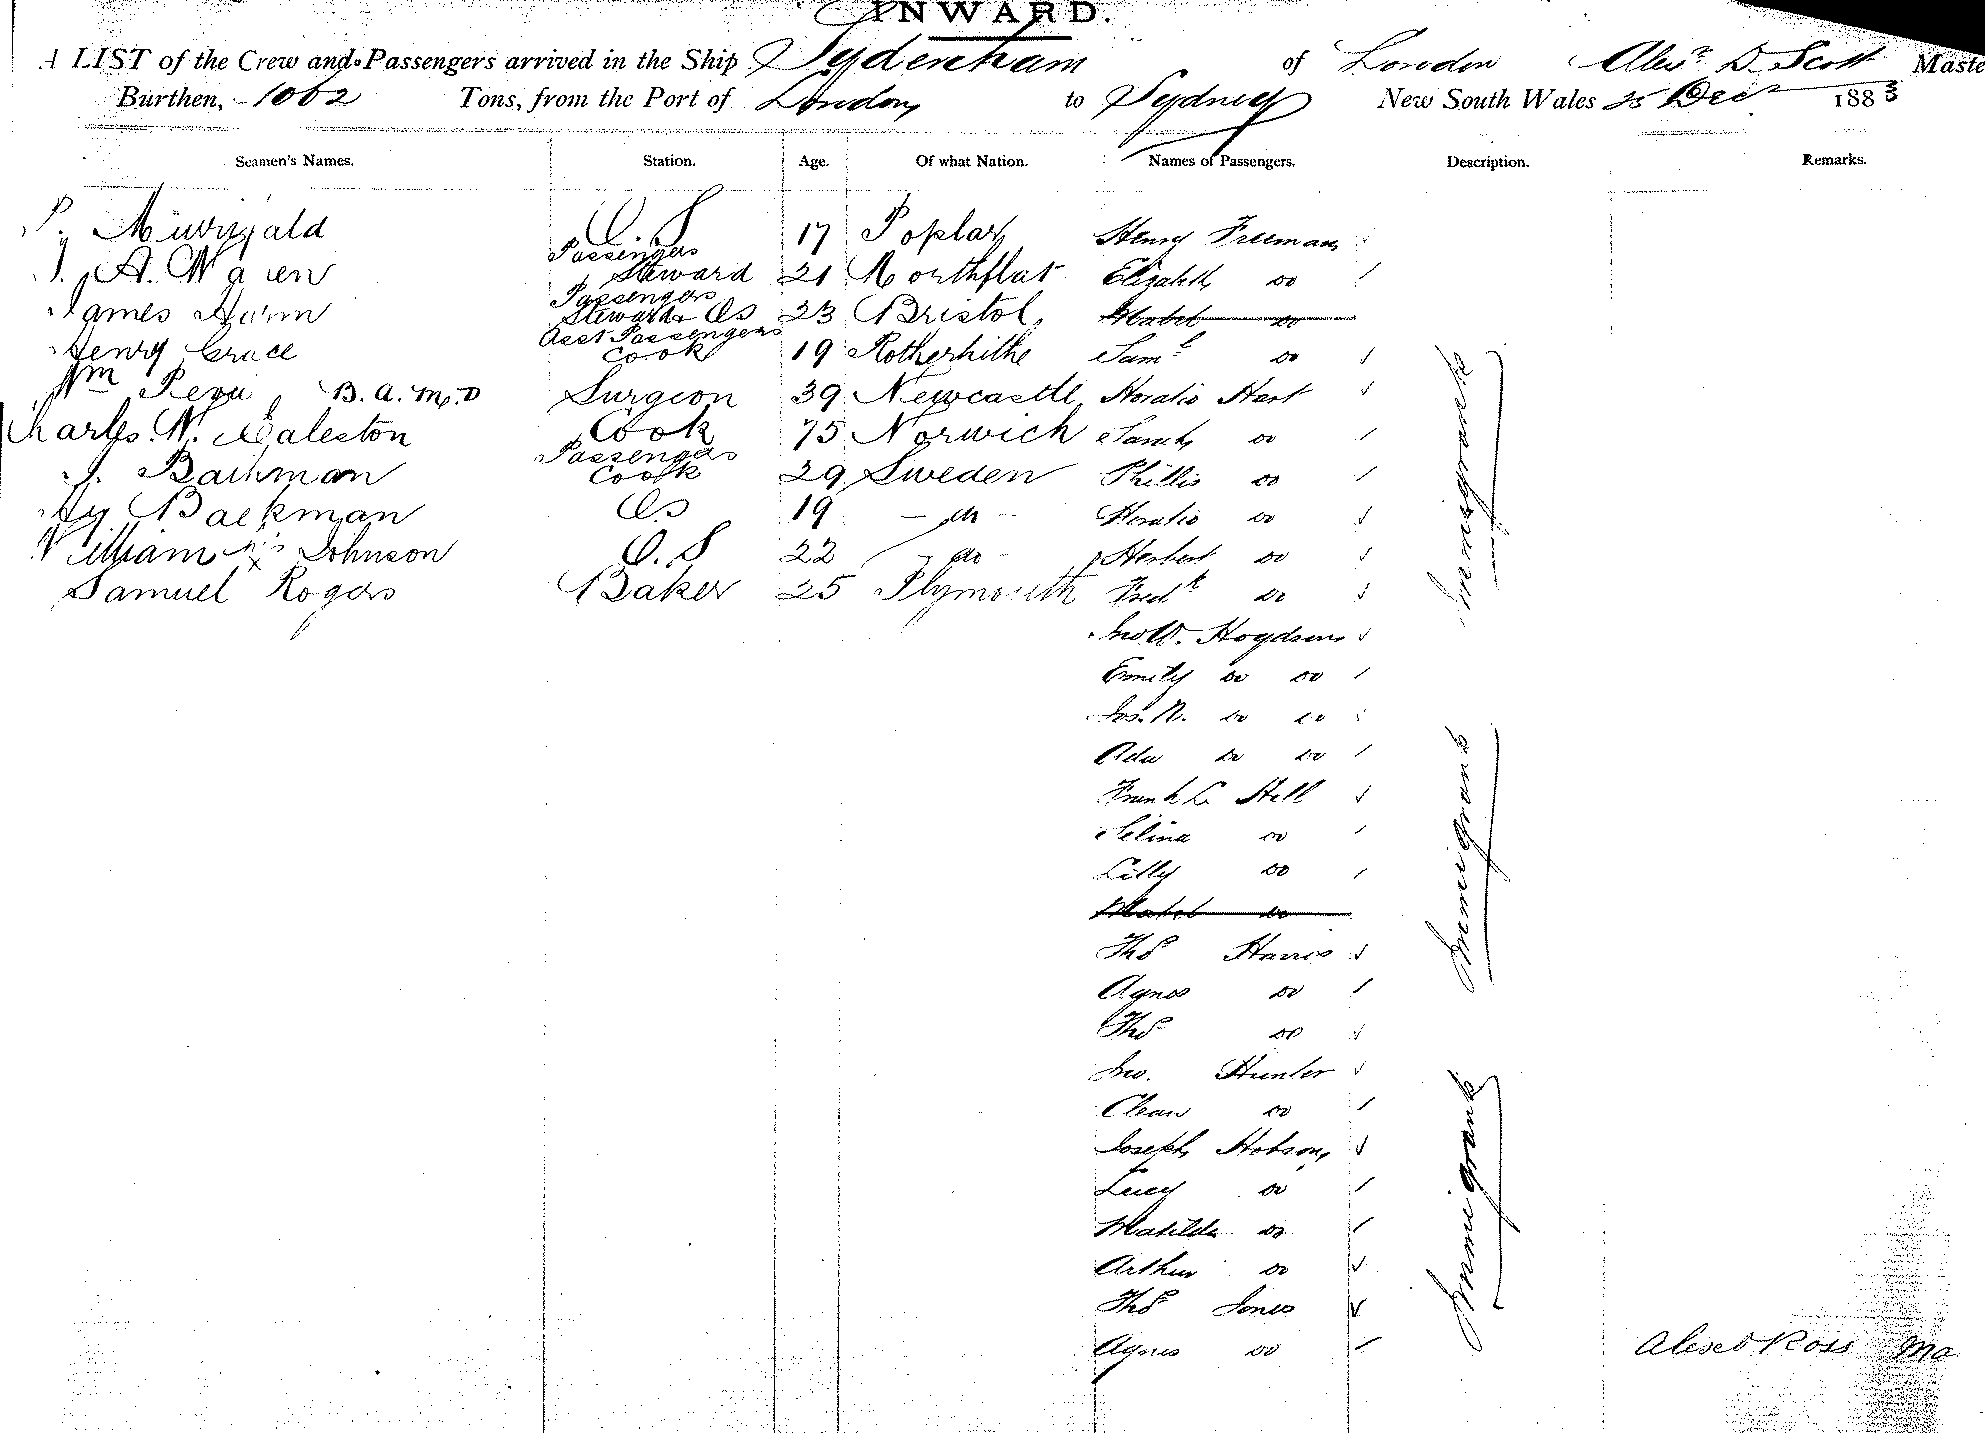 INWARD.
A LIST of the Crew and Passengers arrived in the Ship Sydenham of London Alexr D Scott Maste
Burthen, 1062 Tons, from the Port of London to Sydney New South Wales 25 Decr 1883
Seamen's Names. Station. Age. Of what Nation. Names of Passengers. Description. Remarks.
P. O.S 17 Poplar Henry Freeman
J. A. Passengers Steward 21 Northflat Elizabeth do
James Passengers Steward Os 23 Bristol Mabel do
Henry Grace Asst Passengers Cook 19 Rotherhithe Saml do
Wm B.A.M.D Surgeon 39 Newcastle Horatio Hart
Charles. W. Ealeston Cook 75 Norwich Sarah do
J. Backman Passengers Cook 29 Sweden Phillis do
Hy Backman Os 19 - do - Horatio do
William X Johnson O.S 22 - do - Herbert do
Samuel Rogers Baker 25 Plymouth Fredk do
Immigrants
Jno W. Hogdson
Emily do do
Jos. N. do do
Ada do do
Frank L Hill
Selina do
Lilly do
Mabel do
Immigrants
Thos Harris
Agnes do
Thos do
Jno. Hunter
do
Joseph Hobson
Lucy do
Matilda do
Arthur do
Thos Jones
Agnes do
Immigrants
Ross Ma